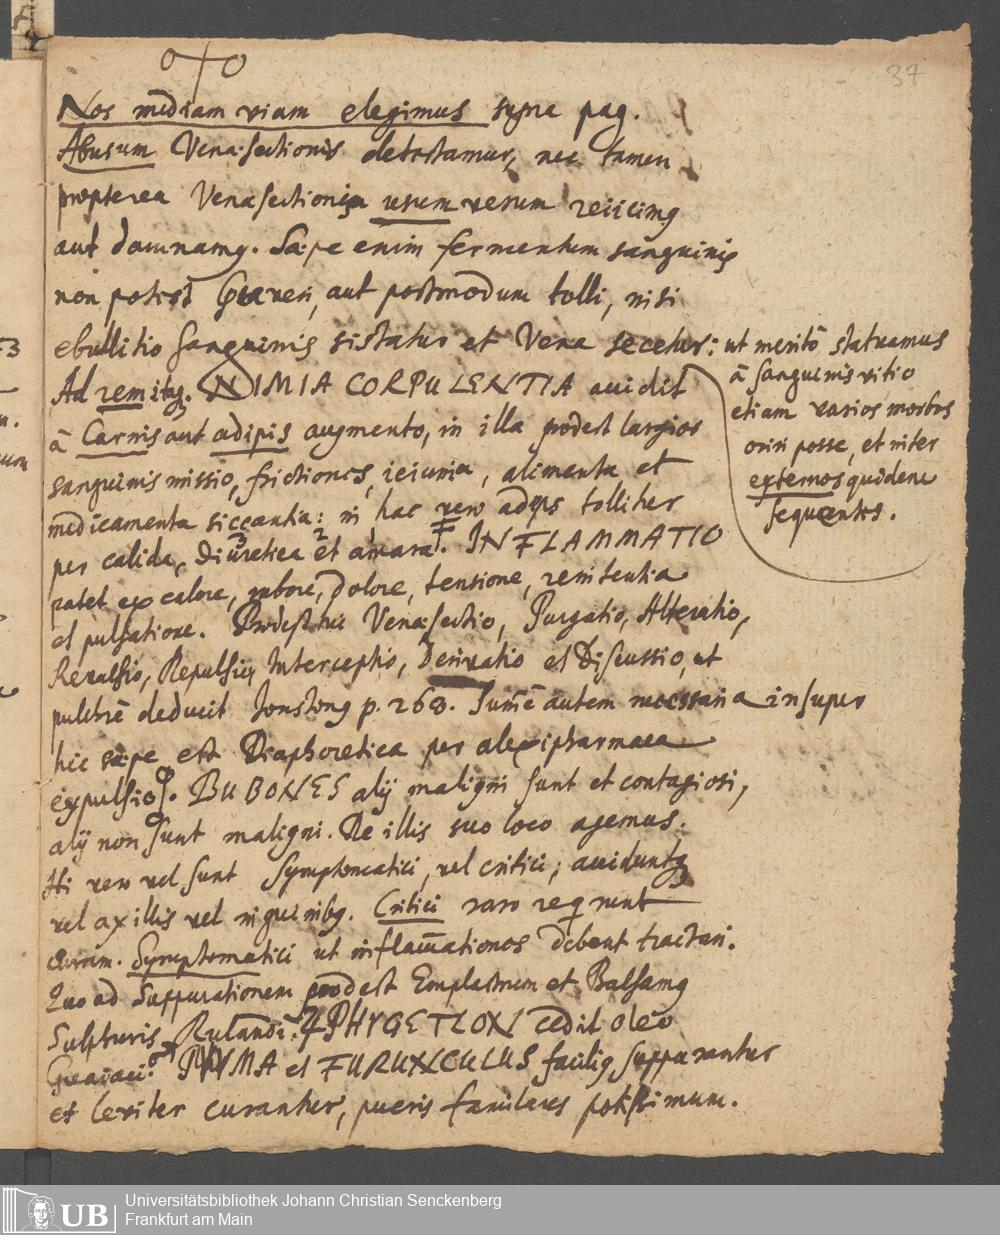 37
Nos mediam viam elegimus pag.
Abusum Venæsectionis detestamur, nec tamen
propterea Venæsectionis usum verum reiicimg
aut damnamg. Sæpe enim fermentum sanguinis
non potest aut postmodum tolli, nisi
ebullitio sanguinis sistatur et Vena secetur: ut meritò statuamus
à sanguinis vitio
etiam varios morbos
oriri posse, et inter
externos quidem
sequentes.
Ad rem itaq. NIMIA CORPULENTIA accidit
à Carnis aut adipis augmento, in illa prodest largior
sanguinis missio, frictiones, ieiunia, alimenta et
medicamenta siccantia: in hac vero adeps tollitur
per calida, Diuretica et amara. INFLAMMATIO
patet ex calore, rubore, dolore, tensione, renitentia
et pulsatione. Prodest hic Venæsectio, Purgatio, Alteratio,
Revulsio, Repulsio, Interceptio, Derivatio et Discussio, ut
pulchrè deducit Jonstong p. 268. autem necessaria insuper
hic sæpe est Diaphoretica per alexipharmaca
expulsio. BUBONES alij maligni sunt et contagiosi,
alij non sunt maligni. De illis suo loco agemus.
Hi vero vel sunt Symptomatici, vel critici; acciduntq
vel axillis vel inguinibg. Critici raro requirunt
curam. Symptomatici ut inflam̄ationes debent tractari.
Quo ad Suppurationem prodest Emplastrum et Balsamg
Sulphuris Rulandi. PHYGETLON cedit oleo
Guaiaci. PHYMA et FURUNCULUS facilig suppurantur
et leviter curantur, pueris familiares potissimum.
UB
Universitätsbibliothek Johann Christian Senckenberg
Frankfurt am Main